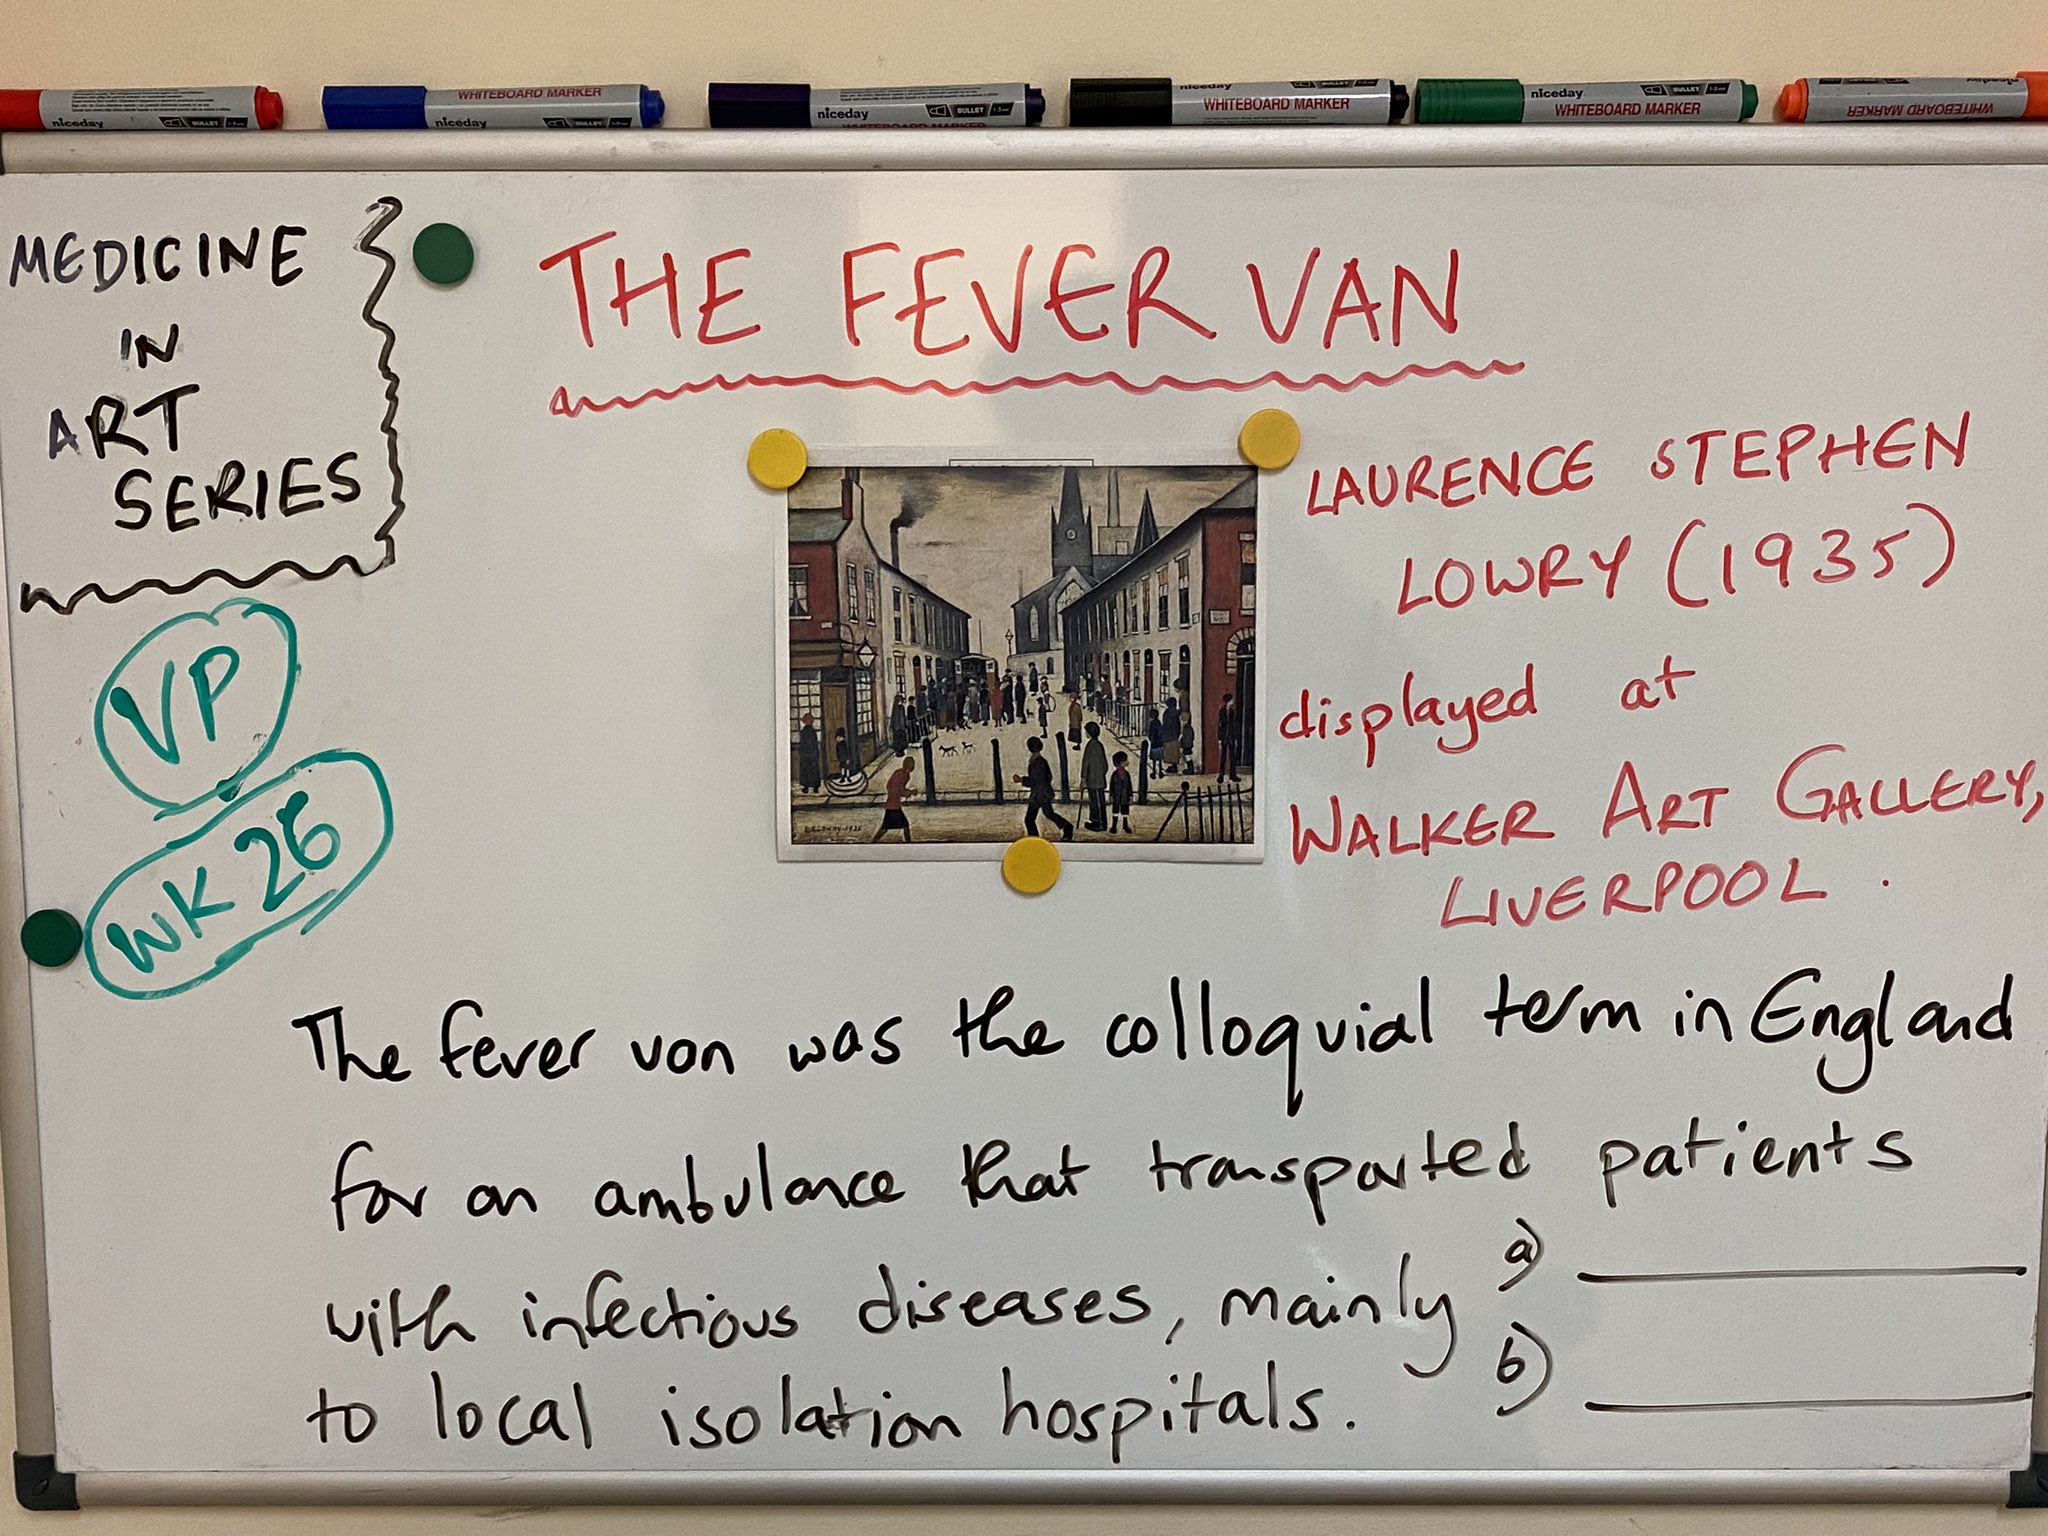 niceday BULLET
niceday WHITEBOARD MARKER BULLET
niceday WHITEBOARD MARKER BULLET
WHITEBOARD MARKER
niceday WHITEBOARD MARKER BULLET
WHITEBOARD MARKER
MEDICINE
IN
ART
SERIES
VP
WK 26
THE FEVER VAN
LAURENCE STEPHEN
LOWRY (1935)
displayed at
WALKER ART GALLERY,
LIVERPOOL.
The fever van was the colloquial term in England
for an ambulance that transported patients
with infectious diseases, mainly
to local isolation hospitals.
a)
b)